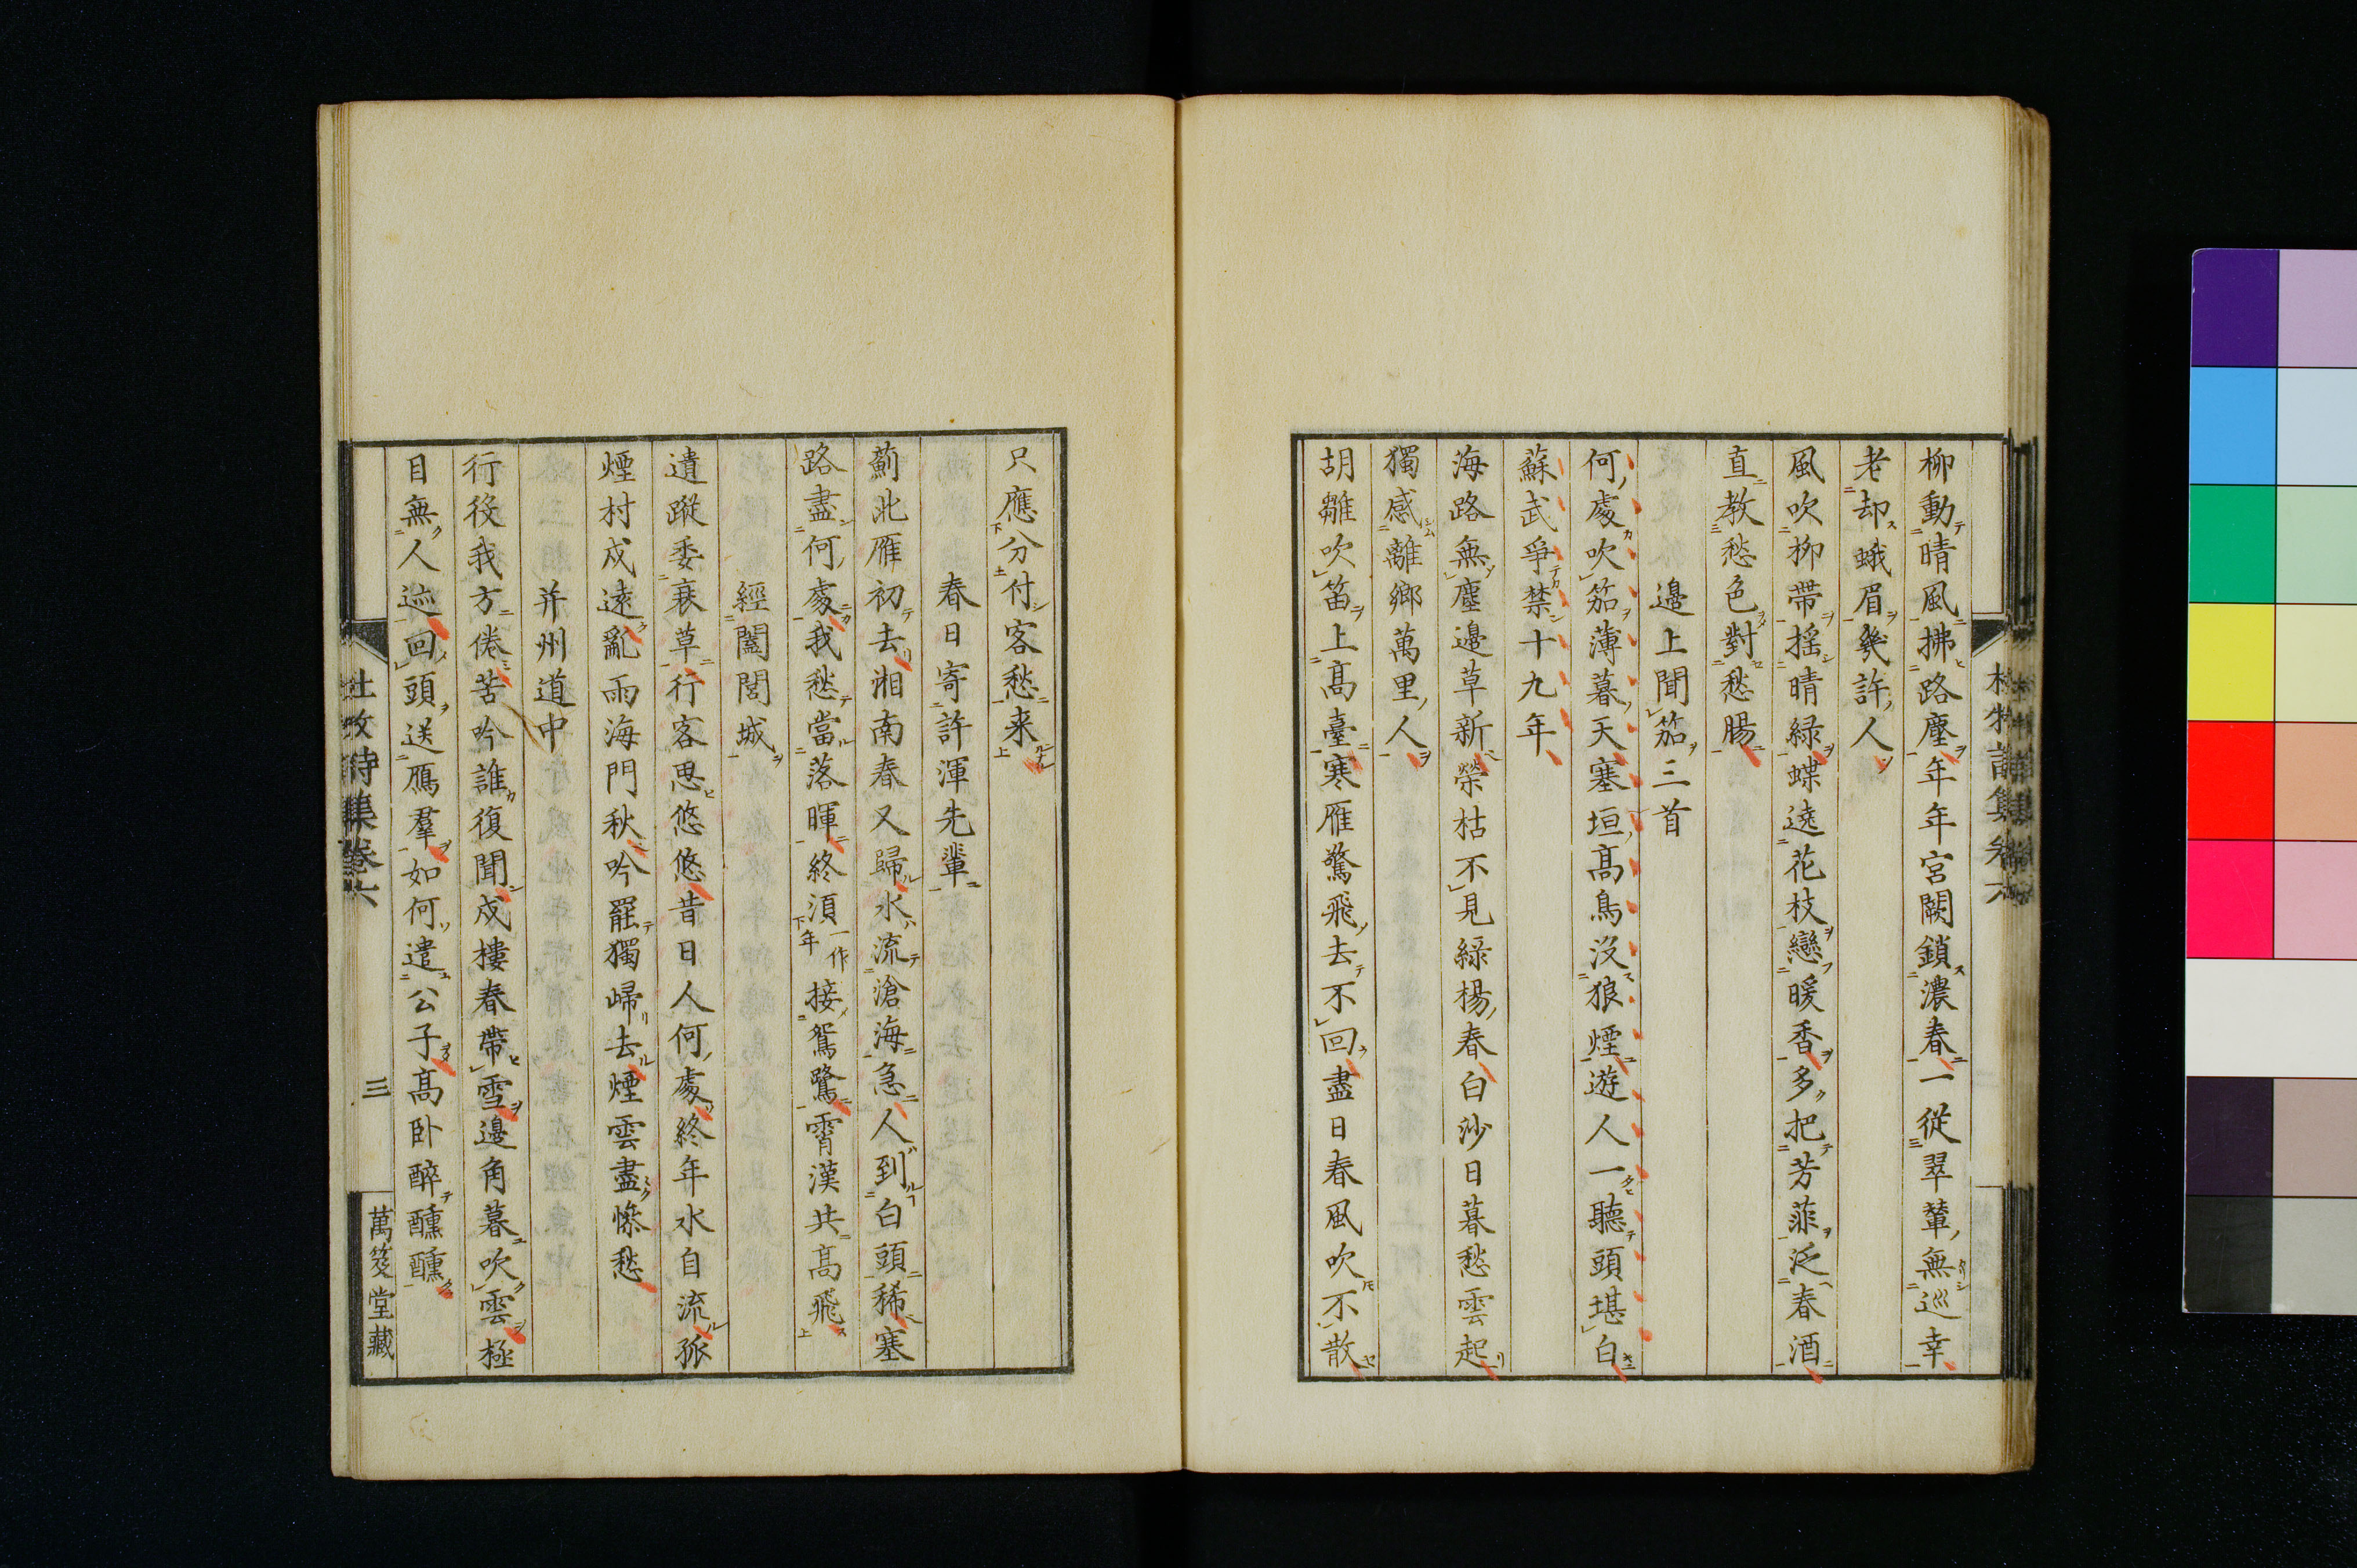 柳動晴風拂路塵年年宮闕鎖濃春一從翠輦無巡幸
老却蛾眉幾許人
風吹柳帶揺晴緑蝶遶花枝戀暖香多把芳菲泛春酒
直教愁色對愁腸
邉上聞笳三首
何處吹笳薄暮天塞垣髙鳥沒狼煙遊人一聽頭堪白
蘇武爭禁十九年
海路無塵邉草新榮枯不見緑楊春白沙日暮愁雲起
獨感離鄉萬里人
胡雛吹笛上髙臺寒雁驚飛去不回盡日春風吹不散
只應分付客愁来
春日寄許渾先輩
薊北雁初去湘南春又歸水流滄海急人到白頭稀塞
路盡何處我愁當落暉終須一作下年接鴛鷺霄漢共髙飛
經闔閭城
遺蹤委衰草行客思悠悠昔日人何處終年水自流孤
煙村戍遠亂雨海門秋吟罷獨歸去煙雲盡慘愁
并州道中
行役我方倦苦吟誰復聞戍樓春帶雪邉角暮吹雲極
目無人迹回頭送鴈羣如何遣公子髙卧醉醺醺
杜牧詩集卷六
三
萬笈堂藏